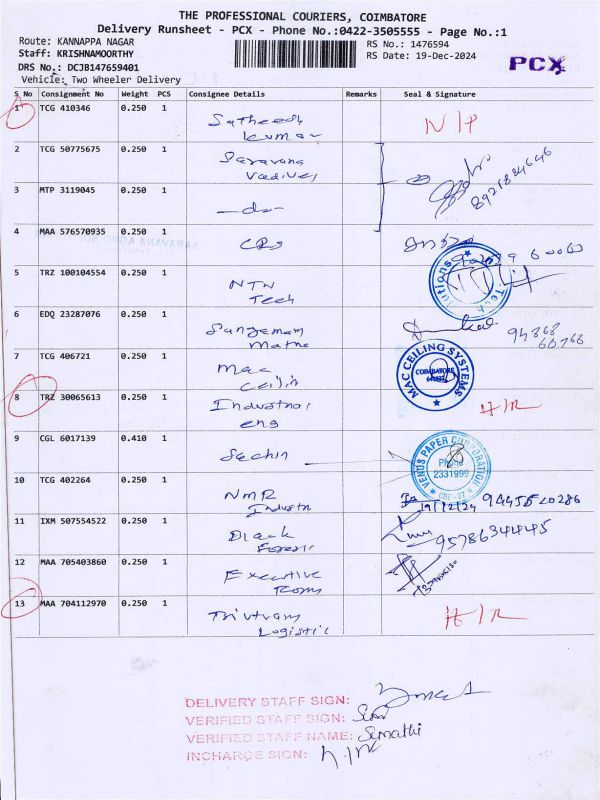 THE PROFESSIONAL COURIERS, COIMBATORE
Delivery Runsheet - PCX - Phone No.:0422-3505555 - Page No.:1
Route: KANNAPPA NAGAR
RS No.: 1476594
Staff: KRISHNAMOORTHY
RS Date: 19-Dec-2024
DRS No.: DCJB147659401
Vehicle: Two Wheeler Delivery
PCX
S No Consignment No Weight PCS Consignee Details Remarks Seal & Signature
1 TCG 410346 0.250 1
Satheesh
kumar
2 TCG 50775675 0.250 1
Saravana
Vadivel
3 MTP 3119045 0.250 1
-do-
4 MAA 576570935 0.250 1
5 TRZ 100104554 0.250 1
NTN
Tech
6 EDQ 23287076 0.250 1
7 TCG 406721 0.250 1
Mac
MAC CEILING SYSTEMS
COIMBATORE
8 TRZ 30065613 0.250 1
Industrial
eng
9 CGL 6017139 0.410 1
Sechin
VENUS PAPER CORPORATION
Phone
2331999
CBE - 27
10 TCG 402264 0.250 1
NMR
Industr
19/12/24
11 IXM 507554522 0.250 1
Black
Forest
9578634 4445
12 MAA 705403860 0.250 1
Executive
Room
13 MAA 704112970 0.250 1
Logistic
DELIVERY STAFF SIGN:
VERIFIED STAFF SIGN:
VERIFIED STAFF NAME: Sumathi
INCHARGE SIGN: